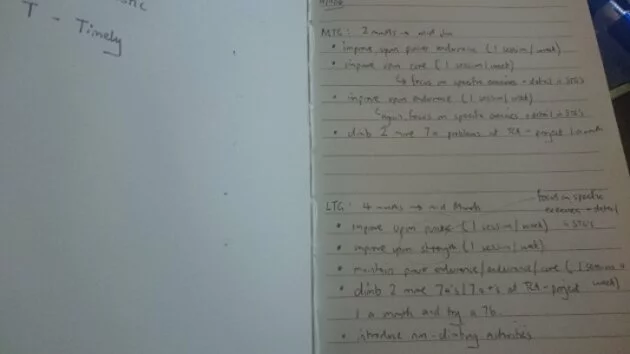 T - Timely
MTG: 2 months → mid
• improve upon power endurance (1 session/week)
• improve upon core (1 session/week)
↳ focus on specific exercises + detail in STG's
• improve upon endurance (1 session/week)
↳ again, focus on specific exercises + detail in STG's
• climb 2 more 7a problems at TCA - project 1 a month
LTG: 4 months → mid March
focus on specific
exercises + detail
in STG's
• improve upon power (1 session/week)
• improve upon strength (1 session/week)
• maintain power endurance/endurance/core (1 session
week)
• climb 2 more 7a's/7a+'s at TCA - project
1 a month and try a 7b.
• introduce non-climbing activities